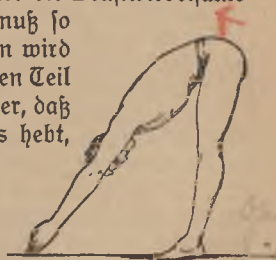 nuß so
n wird
en Teil
er, daß
s hebt,